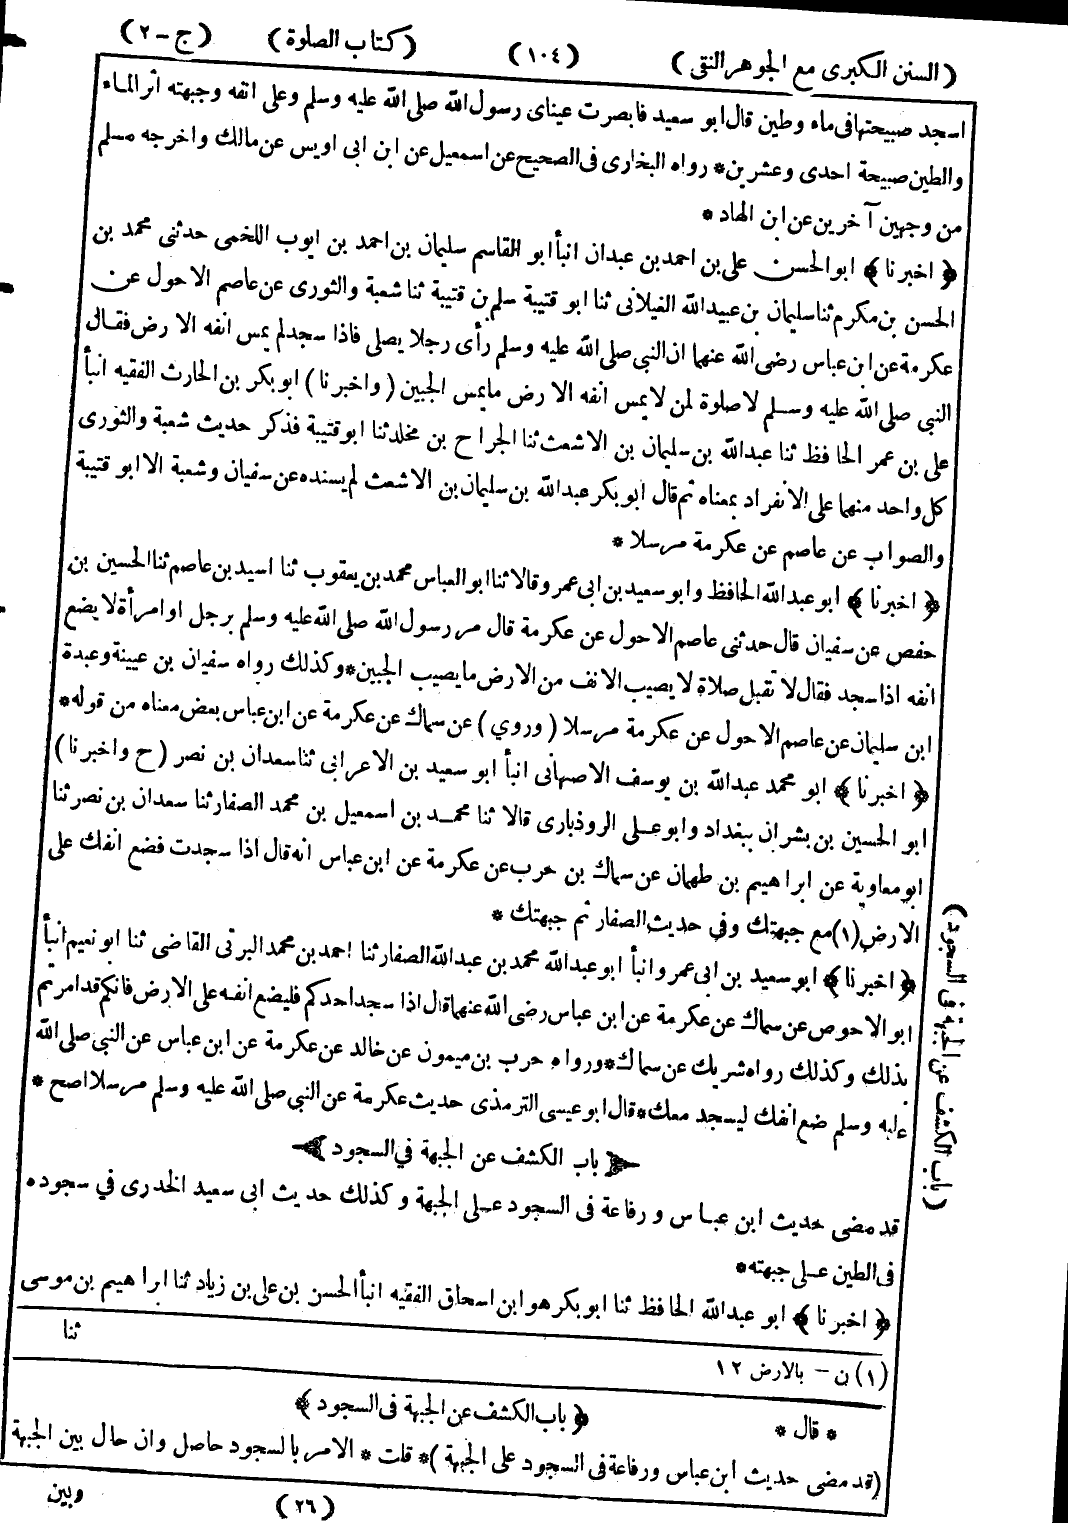 (السنن الكبرى مع الجوهر النقى) (١٠٤) (كتاب الصلوة) (ج-٢)
اسجد صبيحتها فى ماء وطين قال ابو سعيد فابصرت عيناى رسول الله صلى الله عليه وسلم وعلى انفه وجبهته أثر الماء
والطين صبيحة احدى وعشرين* رواه البخارى فى الصحيح عن اسمعيل عن ابن ابى اويس عن مالك واخرجه مسلم
من وجهين آخرين عن ابن الهاد*
﴿ اخبرنا ﴾ ابو الحسن على بن احمد بن عبدان انبأ ابو القاسم سليمان بن احمد بن ايوب اللخمى حدثنى محمد بن
الحسن بن مكرم ثنا سليمان بن عبيد الله الغيلانى ثنا ابو قتيبة سلم بن قتيبة ثنا شعبة والثورى عن عاصم الاحول عن
عكرمة عن ابن عباس رضى الله عنهما ان النبى صلى الله عليه وسلم رأى رجلا يصلى فاذا سجد لم يمس انفه الارض فقال
النبى صلى الله عليه وسلم لا صلوة لمن لا يمس انفه الارض ما يمس الجبين (واخبرنا) ابو بكر بن الحارث الفقيه انبأ
على بن عمر الحافظ ثنا عبد الله بن سليمان بن الاشعث ثنا الجراح بن مخلد ثنا ابو قتيبة فذكر حديث شعبة والثورى
كل واحد منهما على الانفراد بمعناه ثم قال ابو بكر عبد الله بن سليمان بن الاشعث لم يسنده عن سفيان وشعبة الا ابو قتيبة
والصواب عن عاصم عن عكرمة مرسلا*
﴿ اخبرنا ﴾ ابو عبد الله الحافظ وابو سعيد بن ابى عمر وقالا ثنا ابو العباس محمد بن يعقوب ثنا اسيد بن عاصم ثنا الحسين بن
حفص عن سفيان قال حدثنى عاصم الاحول عن عكرمة قال مر رسول الله صلى الله عليه وسلم برجل او امرأة لا يضع
انفه اذا سجد فقال لا تقبل صلاة لا يصيب الانف من الارض ما يصيب الجبين*وكذلك رواه سفيان بن عيينة وعبدة
ابن سليمان عن عاصم الاحول عن عكرمة مرسلا (وروي) عن سماك عن عكرمة عن ابن عباس بعض معناه من قوله*
﴿ اخبرنا ﴾ ابو محمد عبد الله بن يوسف الاصبهانى انبأ ابو سعيد بن الاعرابى ثنا سعدان بن نصر (ح واخبرنا)
ابو الحسين بن بشران ببغداد وابو على الروذبارى قالا ثنا محمد بن اسمعيل بن محمد الصفار ثنا سعدان بن نصر ثنا
ابو معاوية عن ابراهيم بن طهمان عن سماك بن حرب عن عكرمة عن ابن عباس انه قال اذا سجدت فضع انفك على
الارض (١) مع جبهتك وفى حديث الصفار ثم جبهتك*
﴿ اخبرنا ﴾ ابو سعيد بن ابى عمر وانبأ ابو عبد الله محمد بن عبد الله الصفار ثنا احمد بن محمد البرتى القاضى ثنا ابو نعيم انبأ
ابو الاحوص عن سماك عن عكرمة عن ابن عباس رضى الله عنهما قال اذا سجد احدكم فليضع انفه على الارض فانكم قد امرتم
بذلك وكذلك رواه شريك عن سماك*ورواه حرب بن ميمون عن خالد عن عكرمة عن ابن عباس عن النبى صلى الله
عليه وسلم ضع انفك ليسجد معك*قال ابو عيسى الترمذى حديث عكرمة عن النبى صلى الله عليه وسلم مرسلا اصح*
باب الكشف عن الجبهة في السجود
قد مضى حديث ابن عباس ورفاعة فى السجود على الجبهة وكذلك حديث ابى سعيد الخدرى في سجوده
فى الطين على جبهته*
﴿ اخبرنا ﴾ ابو عبد الله الحافظ ثنا ابو بكر هو ابن اسحاق الفقيه انبأ الحسن بن على بن زياد ثنا ابراهيم بن موسى
ثنا
(باب الكشف عن الجبهة فى السجود)
(١) ن - بالارض ١٢
﴿ باب الكشف عن الجبهة فى السجود ﴾
* قال *
(قد مضى حديث ابن عباس ورفاعة فى السجود على الجبهة)* قلت * الامر بالسجود حاصل وان حال بين الجبهة
وبين
(٢٦)